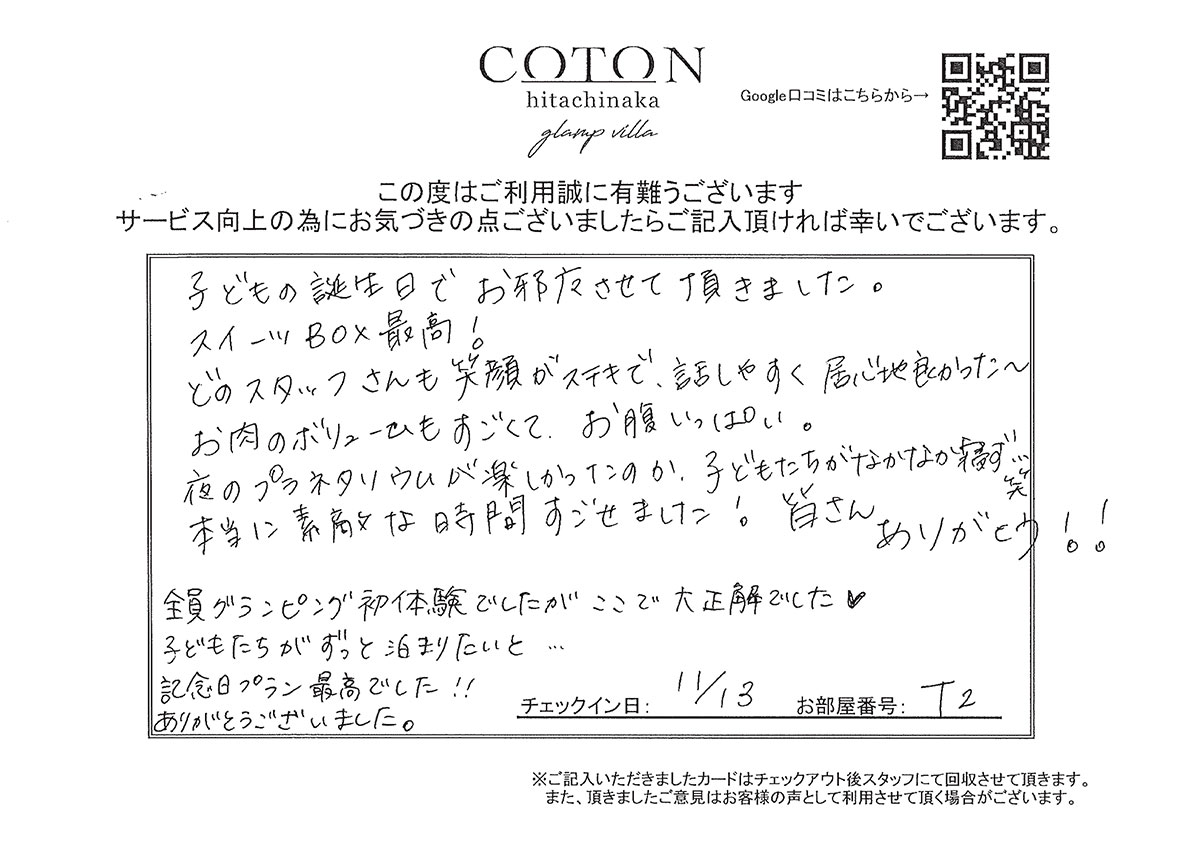 COTON
hitachinaka
glamp villa
Google口コミはこちらから→
この度はご利用誠に有難うございます
サービス向上の為にお気づきの点ございましたらご記入頂ければ幸いでございます。
子どもの誕生日でお邪广させて頂きました。
スイーツBOX最高!
どのスタッフさんも笑顔がステキで、話しやすく居心地良かった〜
お肉のボリュームもすごくて、お腹いっぱい。
夜のプラネタリウムが楽しかったのか、子どもたちがなかなか寝ず…笑
本当に素敵な時間すごせました! 皆さんありがとう!!
全員グランピング初体験でしたがここで大正解でした♥
子どもたちがずっと泊まりたいと…
記念日プラン最高でした!!
ありがとうございました。
チェックイン日: 11/13 お部屋番号: T2
※ご記入いただきましたカードはチェックアウト後スタッフにて回収させて頂きます。
また、頂きましたご意見はお客様の声として利用させて頂く場合がございます。